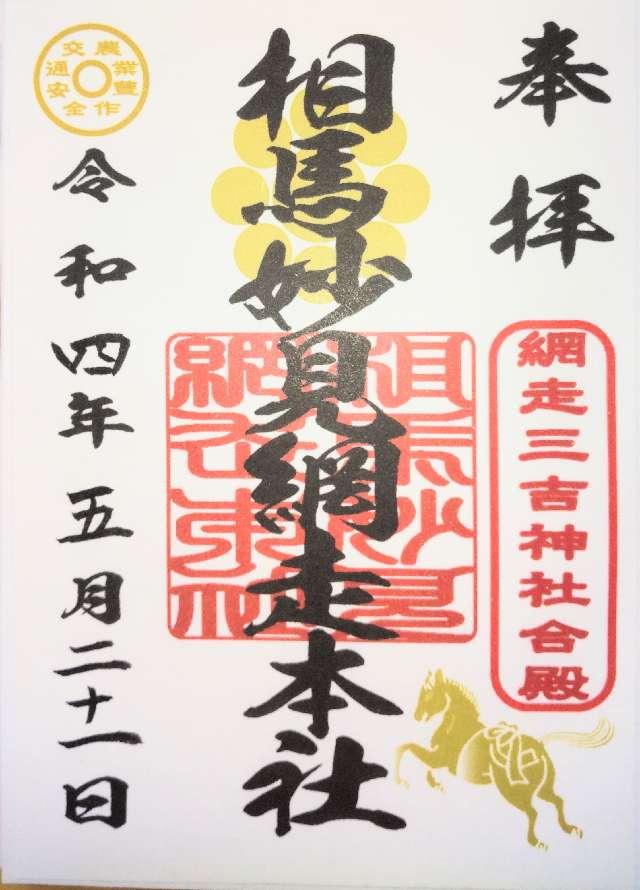 奉拝
網走三吉神社合殿
相馬妙見網走本社
農業豊作
交通安全
令和四年五月二十一日